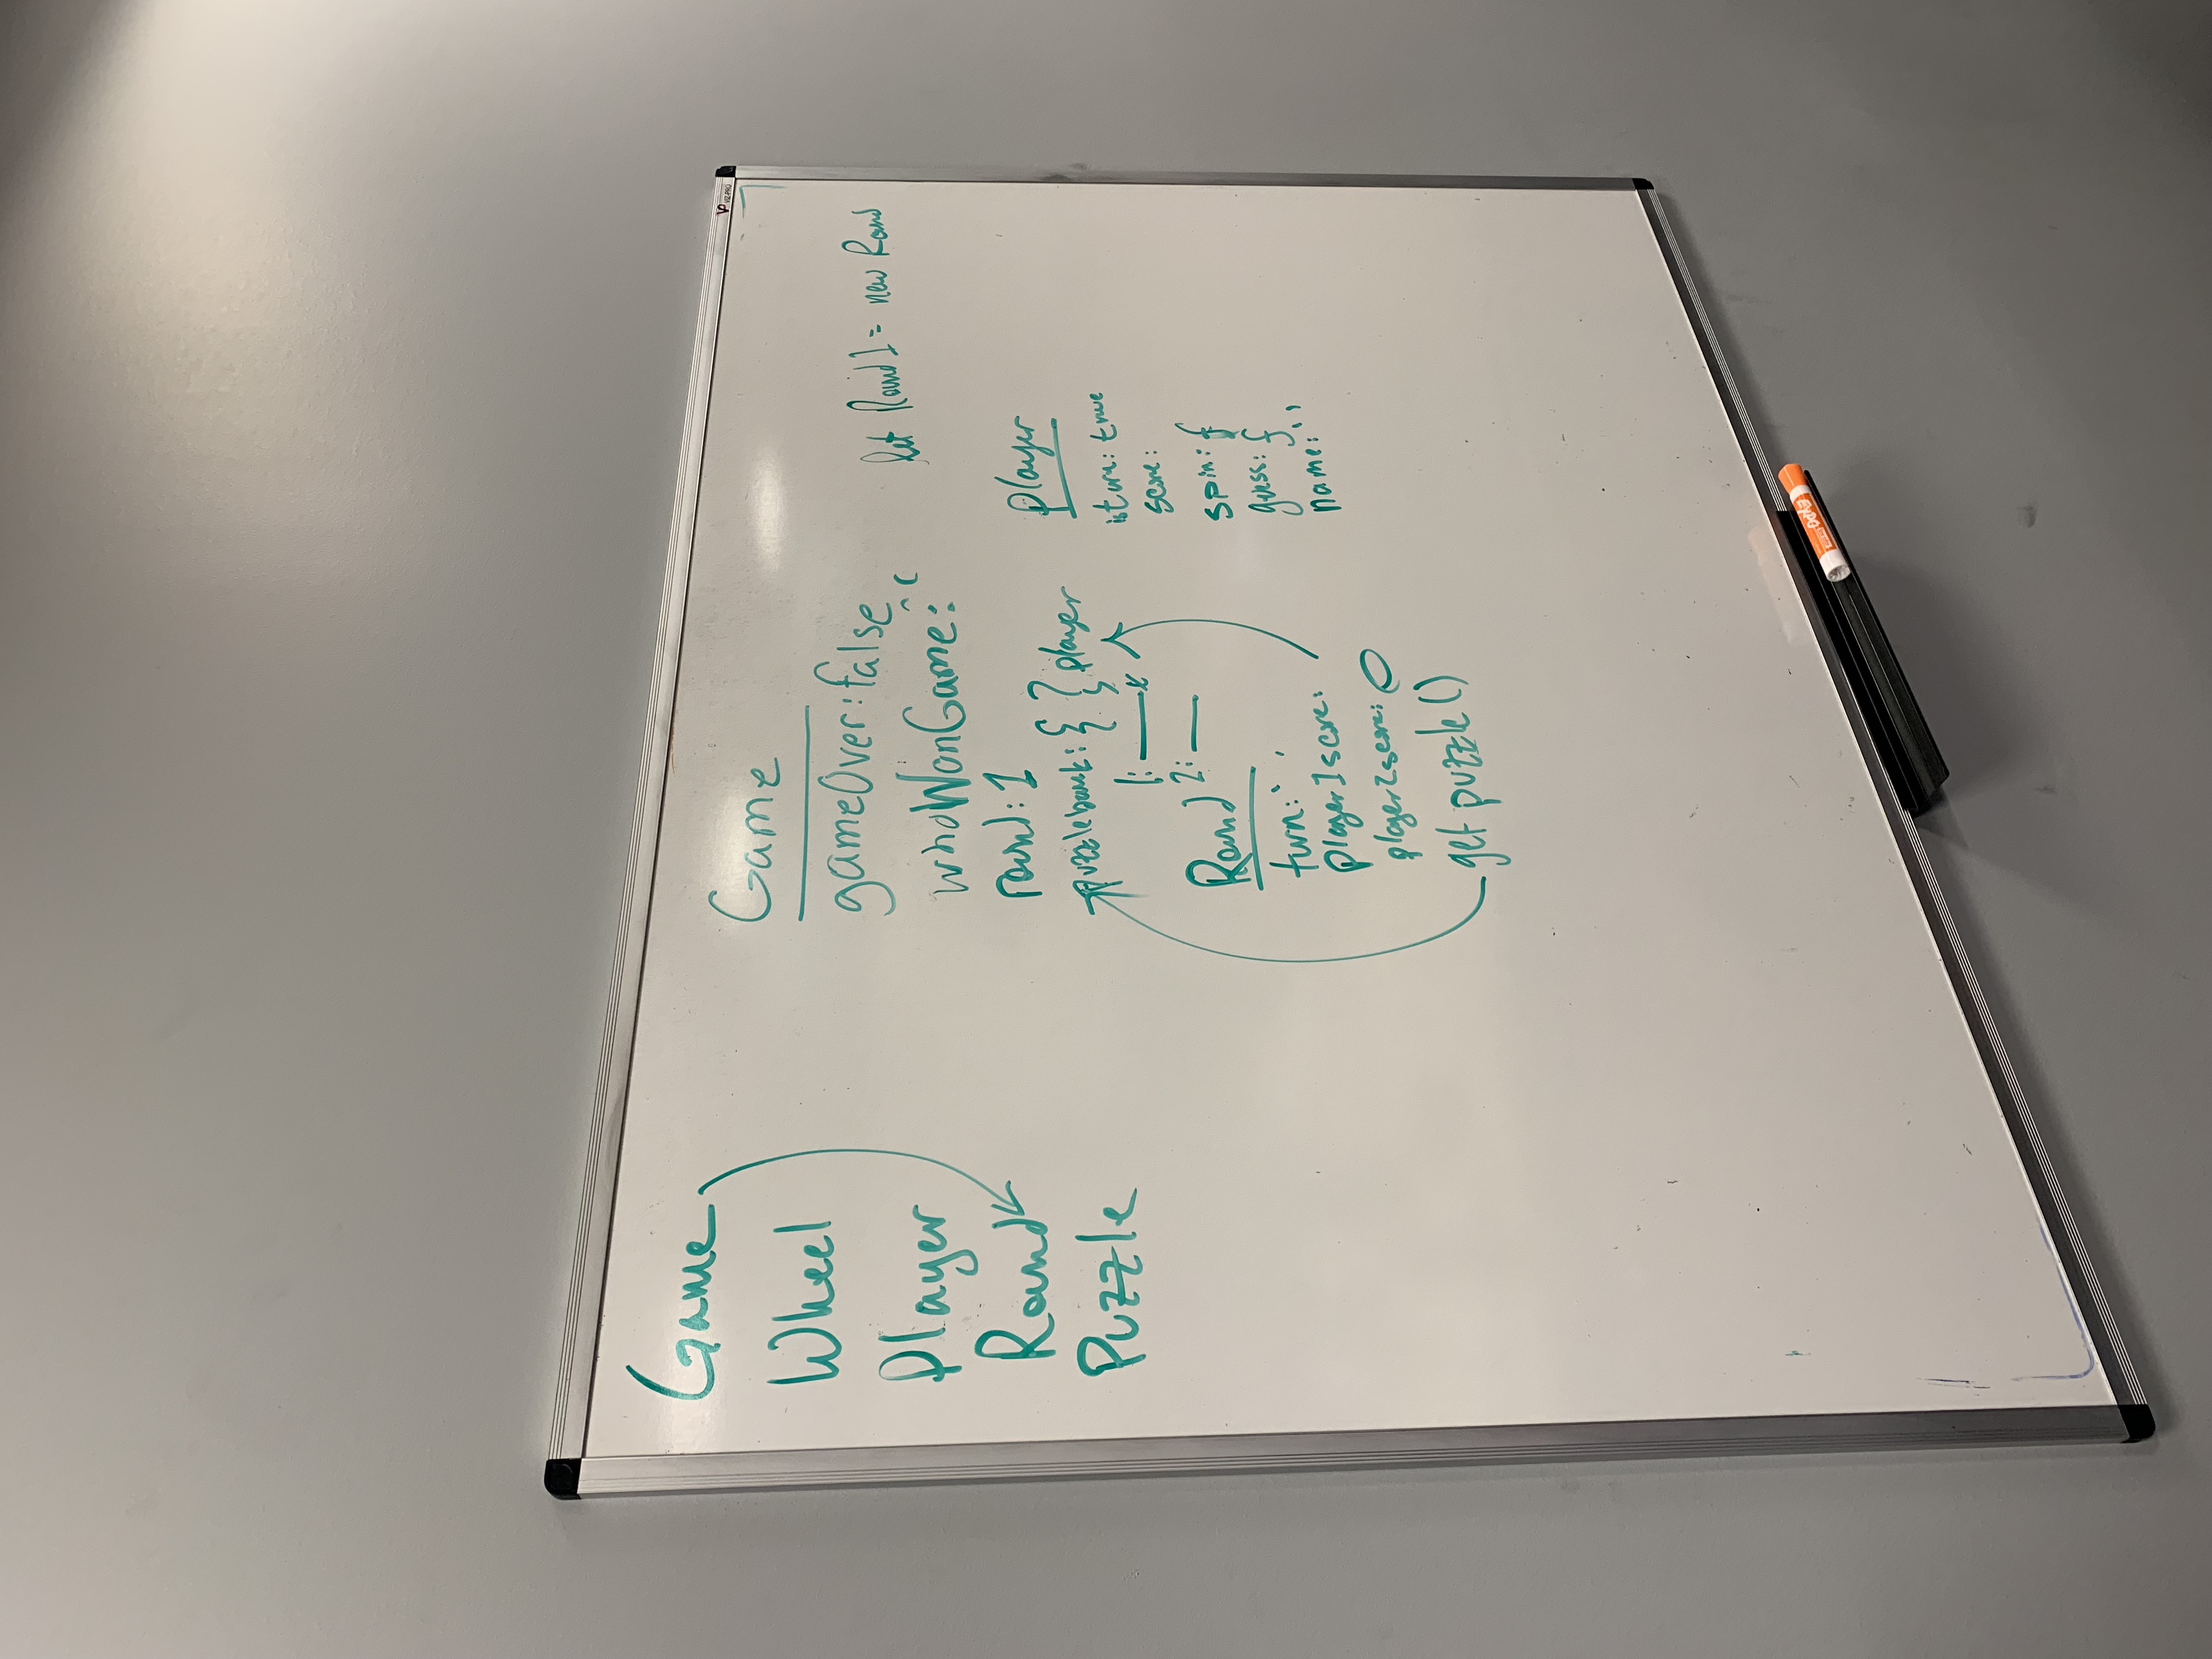 Game
Wheel
Player
Round
Puzzle
Game
gameOver: false
whoWonGame: ' '
round: 1
puzzlebank: { } player
1:
2:
Round
turn: ' '
player1score:
player2score: 0
get puzzle()
let Round1 = new Round
player
isturn: true
score:
spin: f
guess: f
name: ' '
VIZ-PRO
EXPO